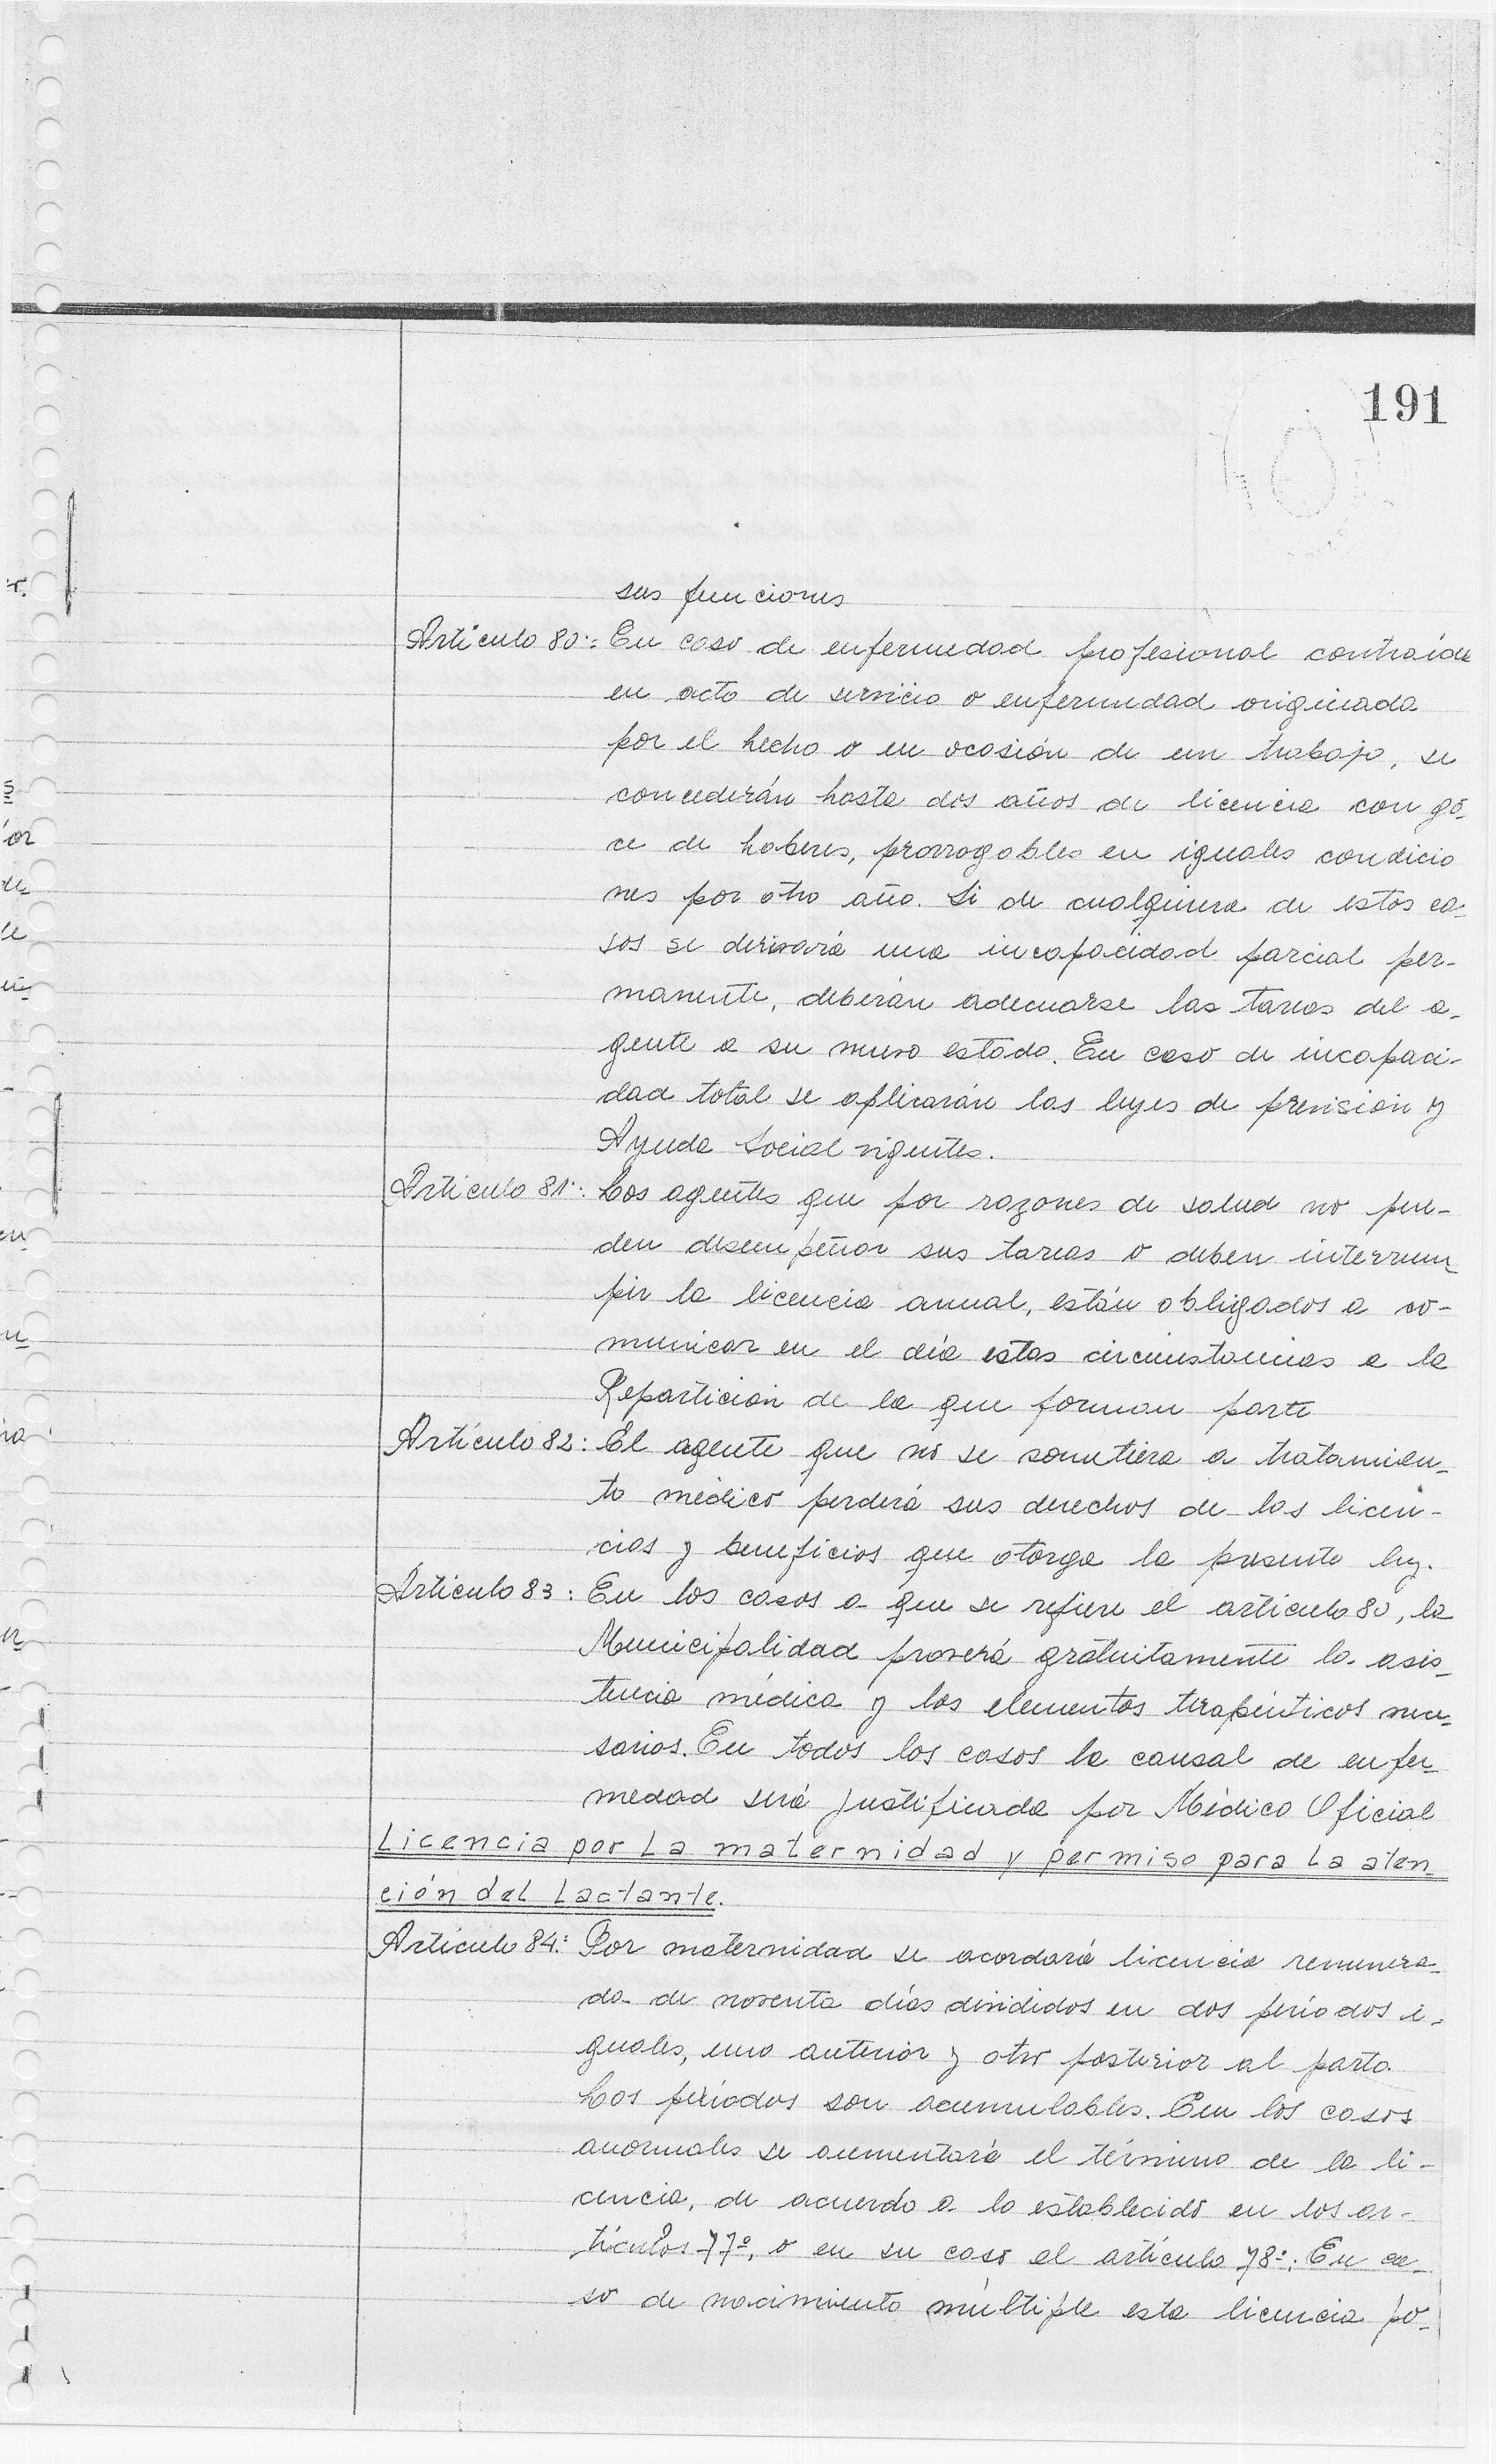 191
sus funciones
Artículo 80º: En caso de enfermedad profesional contraída
en acto de servicio o enfermedad originada
por el hecho o en ocasión de un trabajo, se
concederán hasta dos años de licencia con go-
ce de haberes, prorrogables en iguales condicio
nes por otro año. Si de cualquiera de estos ca-
sos se derivará una incapacidad parcial per-
manente, deberán adecuarse las tareas del a-
gente a su nuevo estado. En caso de incapaci-
dad total se aplicarán las leyes de previsión y
Ayuda Social vigentes.
Artículo 81º: Los agentes que por razones de salud no pue-
den desempeñar sus tareas o deben interrum-
pir la licencia anual, están obligados a co-
municar en el día estas circunstancias a la
Repartición de la que forman parte
Artículo 82: El agente que no se sometiera a tratamien-
to médico perderá sus derechos de las licen-
cias y beneficios que otorga la presente ley.
Artículo 83: En los casos a que se refiere el artículo 80, la
Municipalidad proverá gratuitamente la asis-
tencia médica y los elementos terapéuticos nece-
sarios. En todos los casos la causal de enfer-
medad será justificada por Médico Oficial
Licencia por la maternidad y permiso para la aten-
ción del Lactante.
Artículo 84º: Por maternidad se acordará licencia remunera-
da de noventa días divididos en dos períodos i-
guales, uno anterior y otro posterior al parto.
Los períodos son acumulables. En los casos
anormales se aumentará el término de la li-
cencia, de acuerdo a lo establecido en los ar-
tículos 77º, o en su caso el artículo 78º. En ca-
so de nacimiento múltiple esta licencia po-